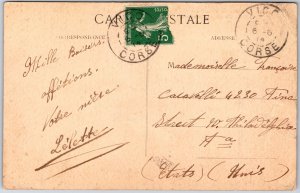 CARTE POSTALE
CORRESPONDANCE
ADRESSE
VICO
CORSE
5
VICO
CORSE
Mille Baisers
affections.
Votre nièce
Lélette
Mademoiselle Françoise
Cacavelli 4230 Pine
Street W. Philadelphia
Pa
(Etats Unis)